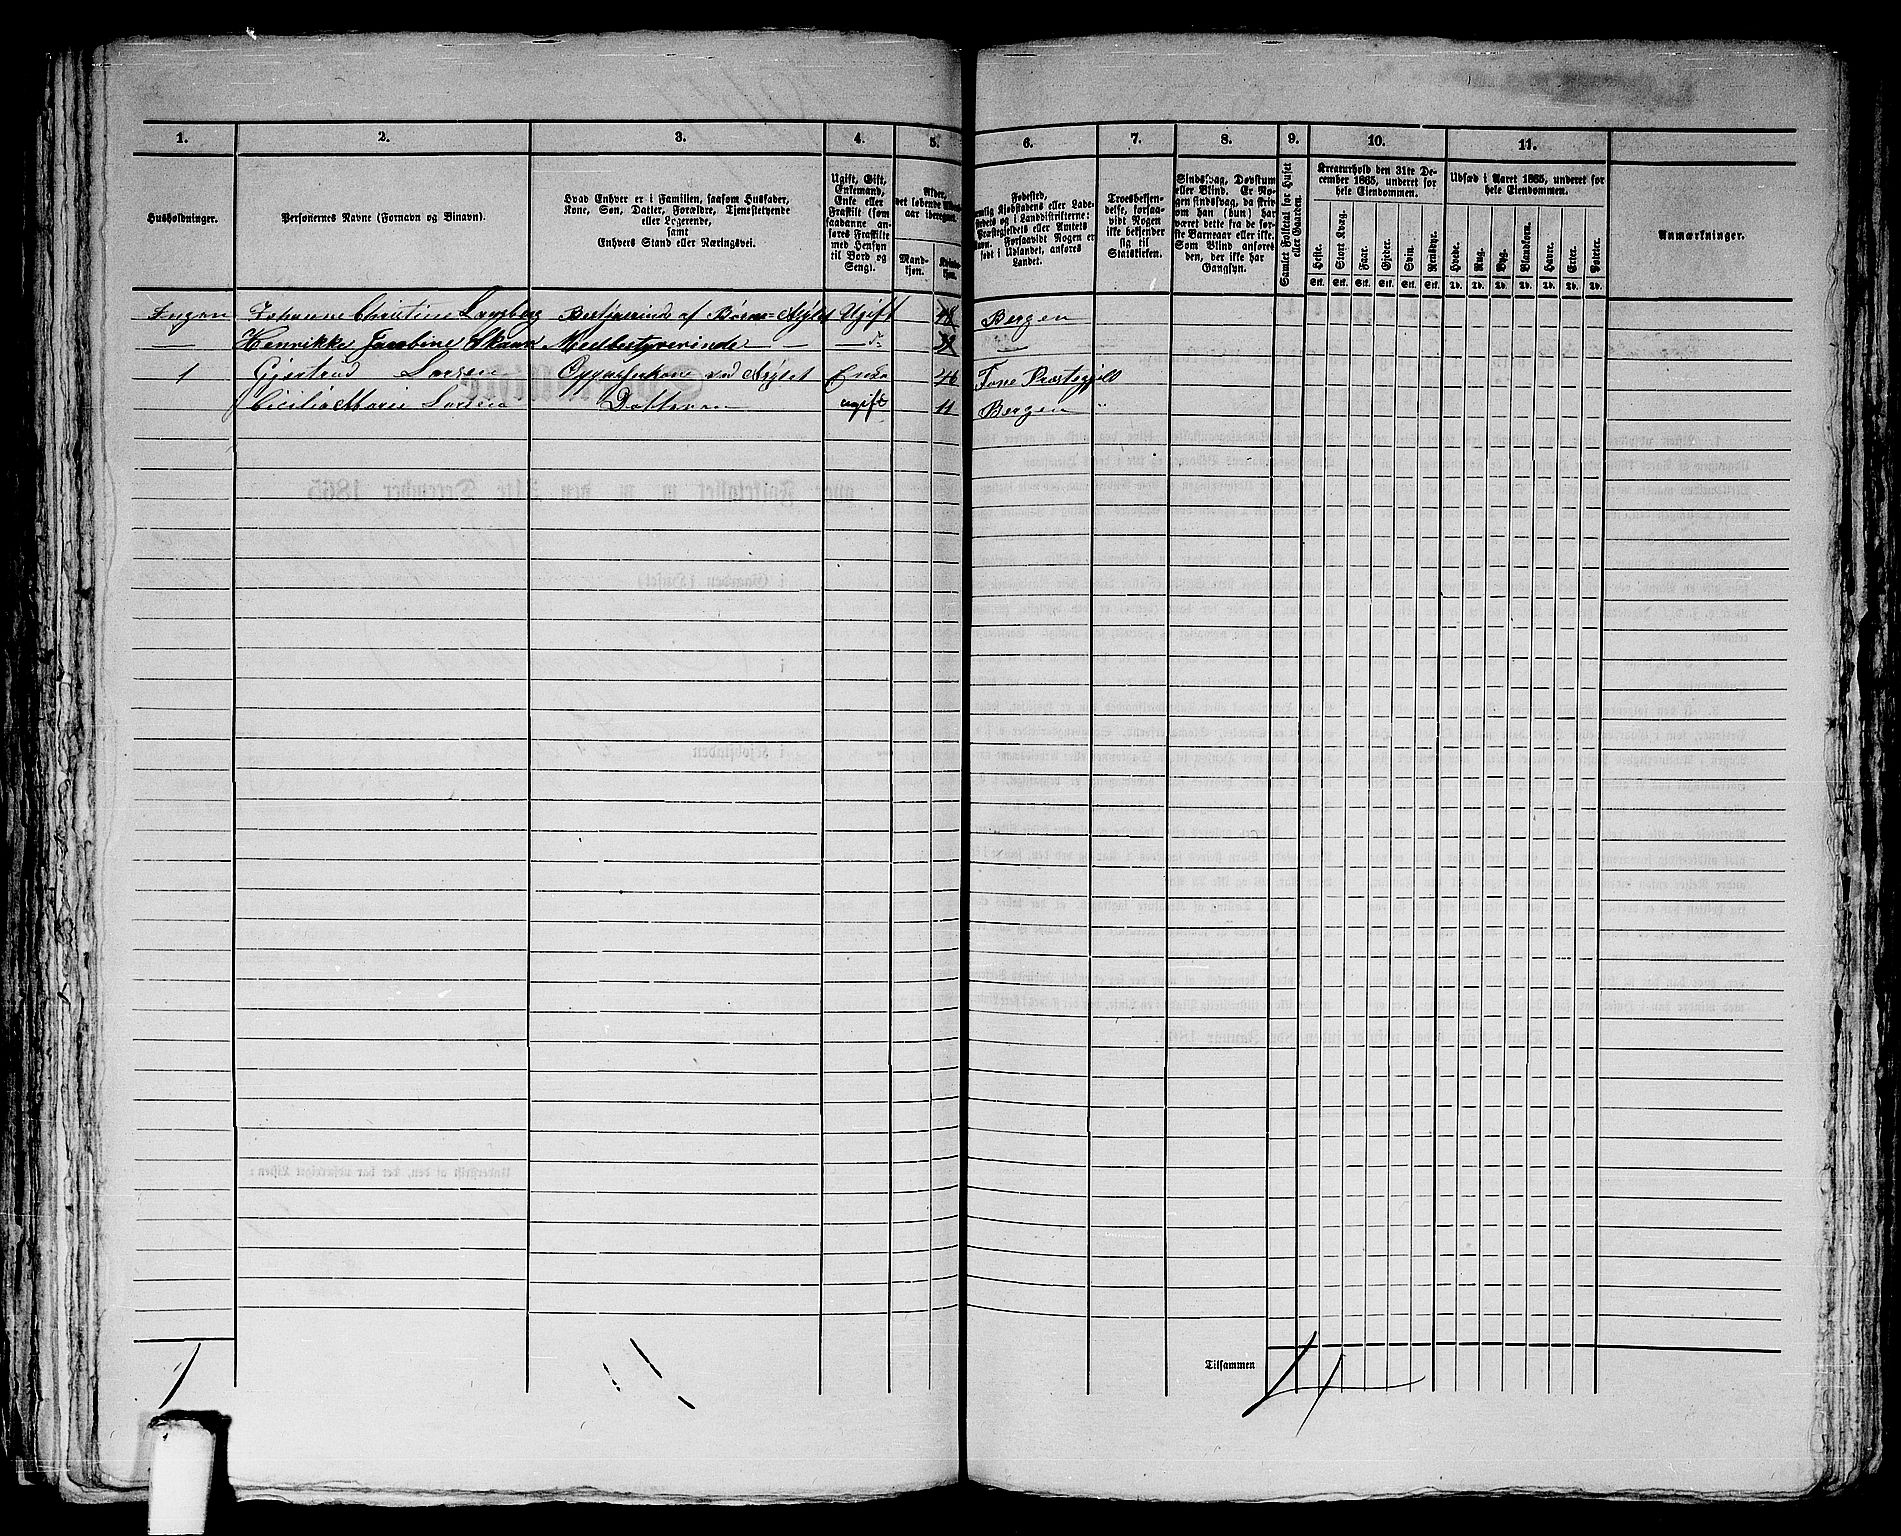 1. 2. 3. 4. 5. 6. 7. 8. 9. 10. 11.
Husholdninger.
Personernes Navne (Fornavn og Binavn).
Hvad Enhver er i Familien, saasom Husfader,
Kone, Søn, Datter, Forældre, Tjenestetyende
eller Logerende,
samt
Enhvers Stand eller Næringsvei.
Ugift, Gift,
Enkemand,
Enke eller
Fraskilt (som
saadanne an-
føres Fraskilte
med Hensyn
til Bord og
Seng).
Alder,
det løbende Alders-
aar iberegnet.
Mand-
kjøn.
Kvinde-
kjøn.
Fødested,
nemlig Kjøbstadens eller Lade-
stedets og i Landdistrikterne:
Præstegjeldets eller Amtets
Navn. Forsaavidt Nogen er
født i Udlandet, anføres
Landet.
Troesbekjen-
delse, forsaa-
vidt Nogen
ikke bekjender
sig til
Statskirken.
Sindssvag, Døvstum
eller Blind. Er No-
gen sindssvag, da skriv
om han (hun) har
været dette fra de før-
ste Barneaar eller ikke.
Som Blind anføres
den, der ikke har
Gangsyn.
Samlet Folketal for Huset
eller Gaarden.
Kreaturhold den 31te De-
cember 1865, underet for
hele Eiendommen.
Heste. Stort Kvæg. Faar. Gjeder. Svin. Rensdyr.
Stk. Stk. Stk. Stk. Stk. Stk.
Udsæd i Aaret 1865, underet for
hele Eiendommen.
Hvede. Rug. Byg. Blandkorn. Havre. Erter. Poteter.
Td. Td. Td. Td. Td. Td. Td.
Anmærkninger.
Ingen Johanne Christine Bestyrerinde af Børne-Asylet Ugift 48 Bergen
— Henrikke Jacobine Skaar Medbestyrerinde — do 38
1 Gjertrud Larsen Oppasserkone ved Asylet Enke 46 Præstegjeld
Cicilia Marie Larsen Datter ugift 11 Bergen "
Tilsammen
1 4